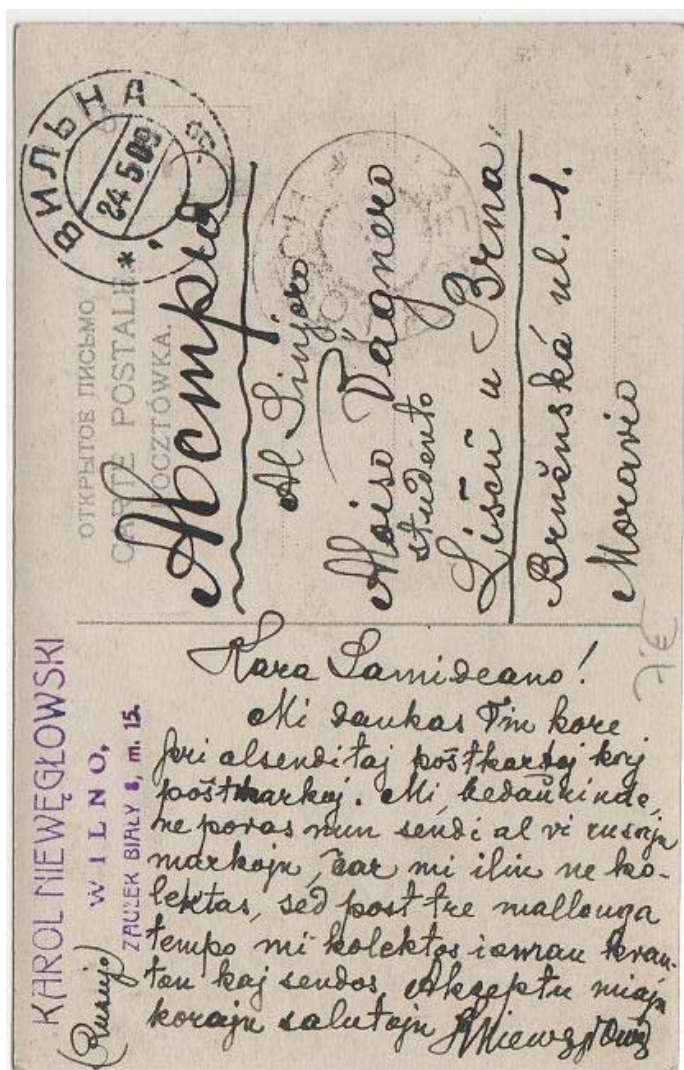 ВИЛЬНА
24 5 09
ОТКРЫТОЕ ПИСЬМО
CARTE POSTALE
POCZTÓWKA.
Австрія
Al Sinjoro
Aloiso Vagnero
studento
Líšeň u Brna.
Brněnská ul. 1.
Moravio
KAROL NIEWĘGŁOWSKI
WILNO,
ZAUŁEK BIAŁY 8, m. 15.
(Rusujo)
Kara Samideano!
Mi dankas Vin kore
pri alsenditaj poŝtkartoj kaj
poŝtmarkoj. Mi, bedaŭrinde,
ne povas nun sendi al vi rusajn
markojn, ĉar mi ilin ne ko-
lektas, sed post tre mallonga
tempo mi kolektos ioman kvan-
ton kaj sendos. Akceptu miajn
korajn salutojn